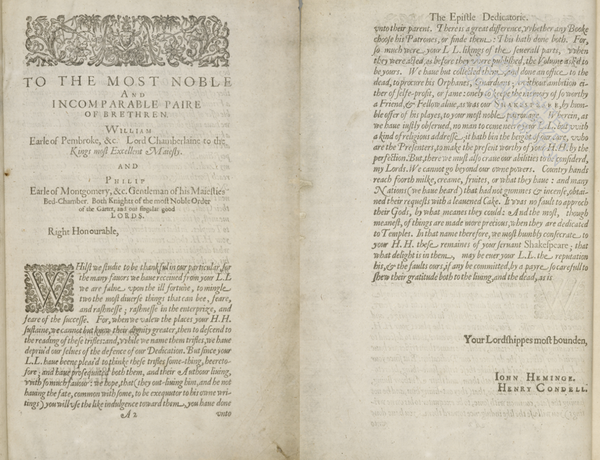 TO THE MOST NOBLE
AND
INCOMPARABLE PAIRE
OF BRETHREN.
WILLIAM
Earle of Pembroke, &c. Lord Chamberlaine to the
Kings most Excellent Maiesty.
AND
PHILIP
Earle of Montgomery, &c. Gentleman of his Maiesties
Bed-Chamber. Both Knights of the most Noble Order
of the Garter, and our singular good
LORDS.
Right Honourable,
WHilst we studie to be thankful in our particular, for
the many fauors we haue receiued from your L.L
we are falne vpon the ill fortune, to mingle
two the most diuerse things that can bee, feare,
and rashnesse; rashnesse in the enterprize, and
feare of the successe. For, when we valew the places your H.H.
sustaine, we cannot but know their dignity greater, then to descend to
the reading of these trifles: and, vvhile we name them trifles, we haue
depriu'd our selues of the defence of our Dedication. But since your
L.L. haue beene pleas'd to thinke these trifles some-thing, heereto-
fore; and haue prosequuted both them, and their Authour liuing,
vvith so much fauour: we hope, that (they out-liuing him, and he not
hauing the fate, common with some, to be exequutor to his owne wri-
tings) you will vse the like indulgence toward them, you haue done
A2 vnto
The Epistle Dedicatorie.
vnto their parent. There is a great difference, vvhether any Booke
choose his Patrones, or finde them: This hath done both. For,
so much were your L L. likings of the seuerall parts, vvhen
they were acted, as before they vvere published, the Volume ask'd to
be yours. We haue but collected them, and done an office to the
dead, to procure his Orphanes, Guardians; vvithout ambition ei-
ther of selfe-profit, or fame: onely to keepe the memory of so worthy
a Friend, & Fellow aliue, as was our SHAKESPEARE, by hum-
ble offer of his playes, to your most noble patronage. Wherein, as
we haue iustly obserued, no man to come neere your L.L. but vvith
a kind of religious addresse; it hath bin the height of our care, vvho
are the Presenters, to make the present worthy of your H.H. by the
perfection. But, there we must also craue our abilities to be considerd,
my Lords. We cannot go beyond our owne powers. Country hands
reach foorth milke, creame, fruites, or what they haue: and many
Nations (we haue heard) that had not gummes & incense, obtai-
ned their requests with a leauened Cake. It vvas no fault to approch
their Gods, by what meanes they could: And the most, though
meanest, of things are made more precious, when they are dedicated
to Temples. In that name therefore, we most humbly consecrate to
your H.H. these remaines of your seruant Shakespeare; that
what delight is in them, may be euer your L.L. the reputation
his, & the faults ours, if any be committed, by a payre so carefull to
shew their gratitude both to the liuing, and the dead, as is
Your Lordshippes most bounden,
IOHN HEMINGE.
HENRY CONDELL.